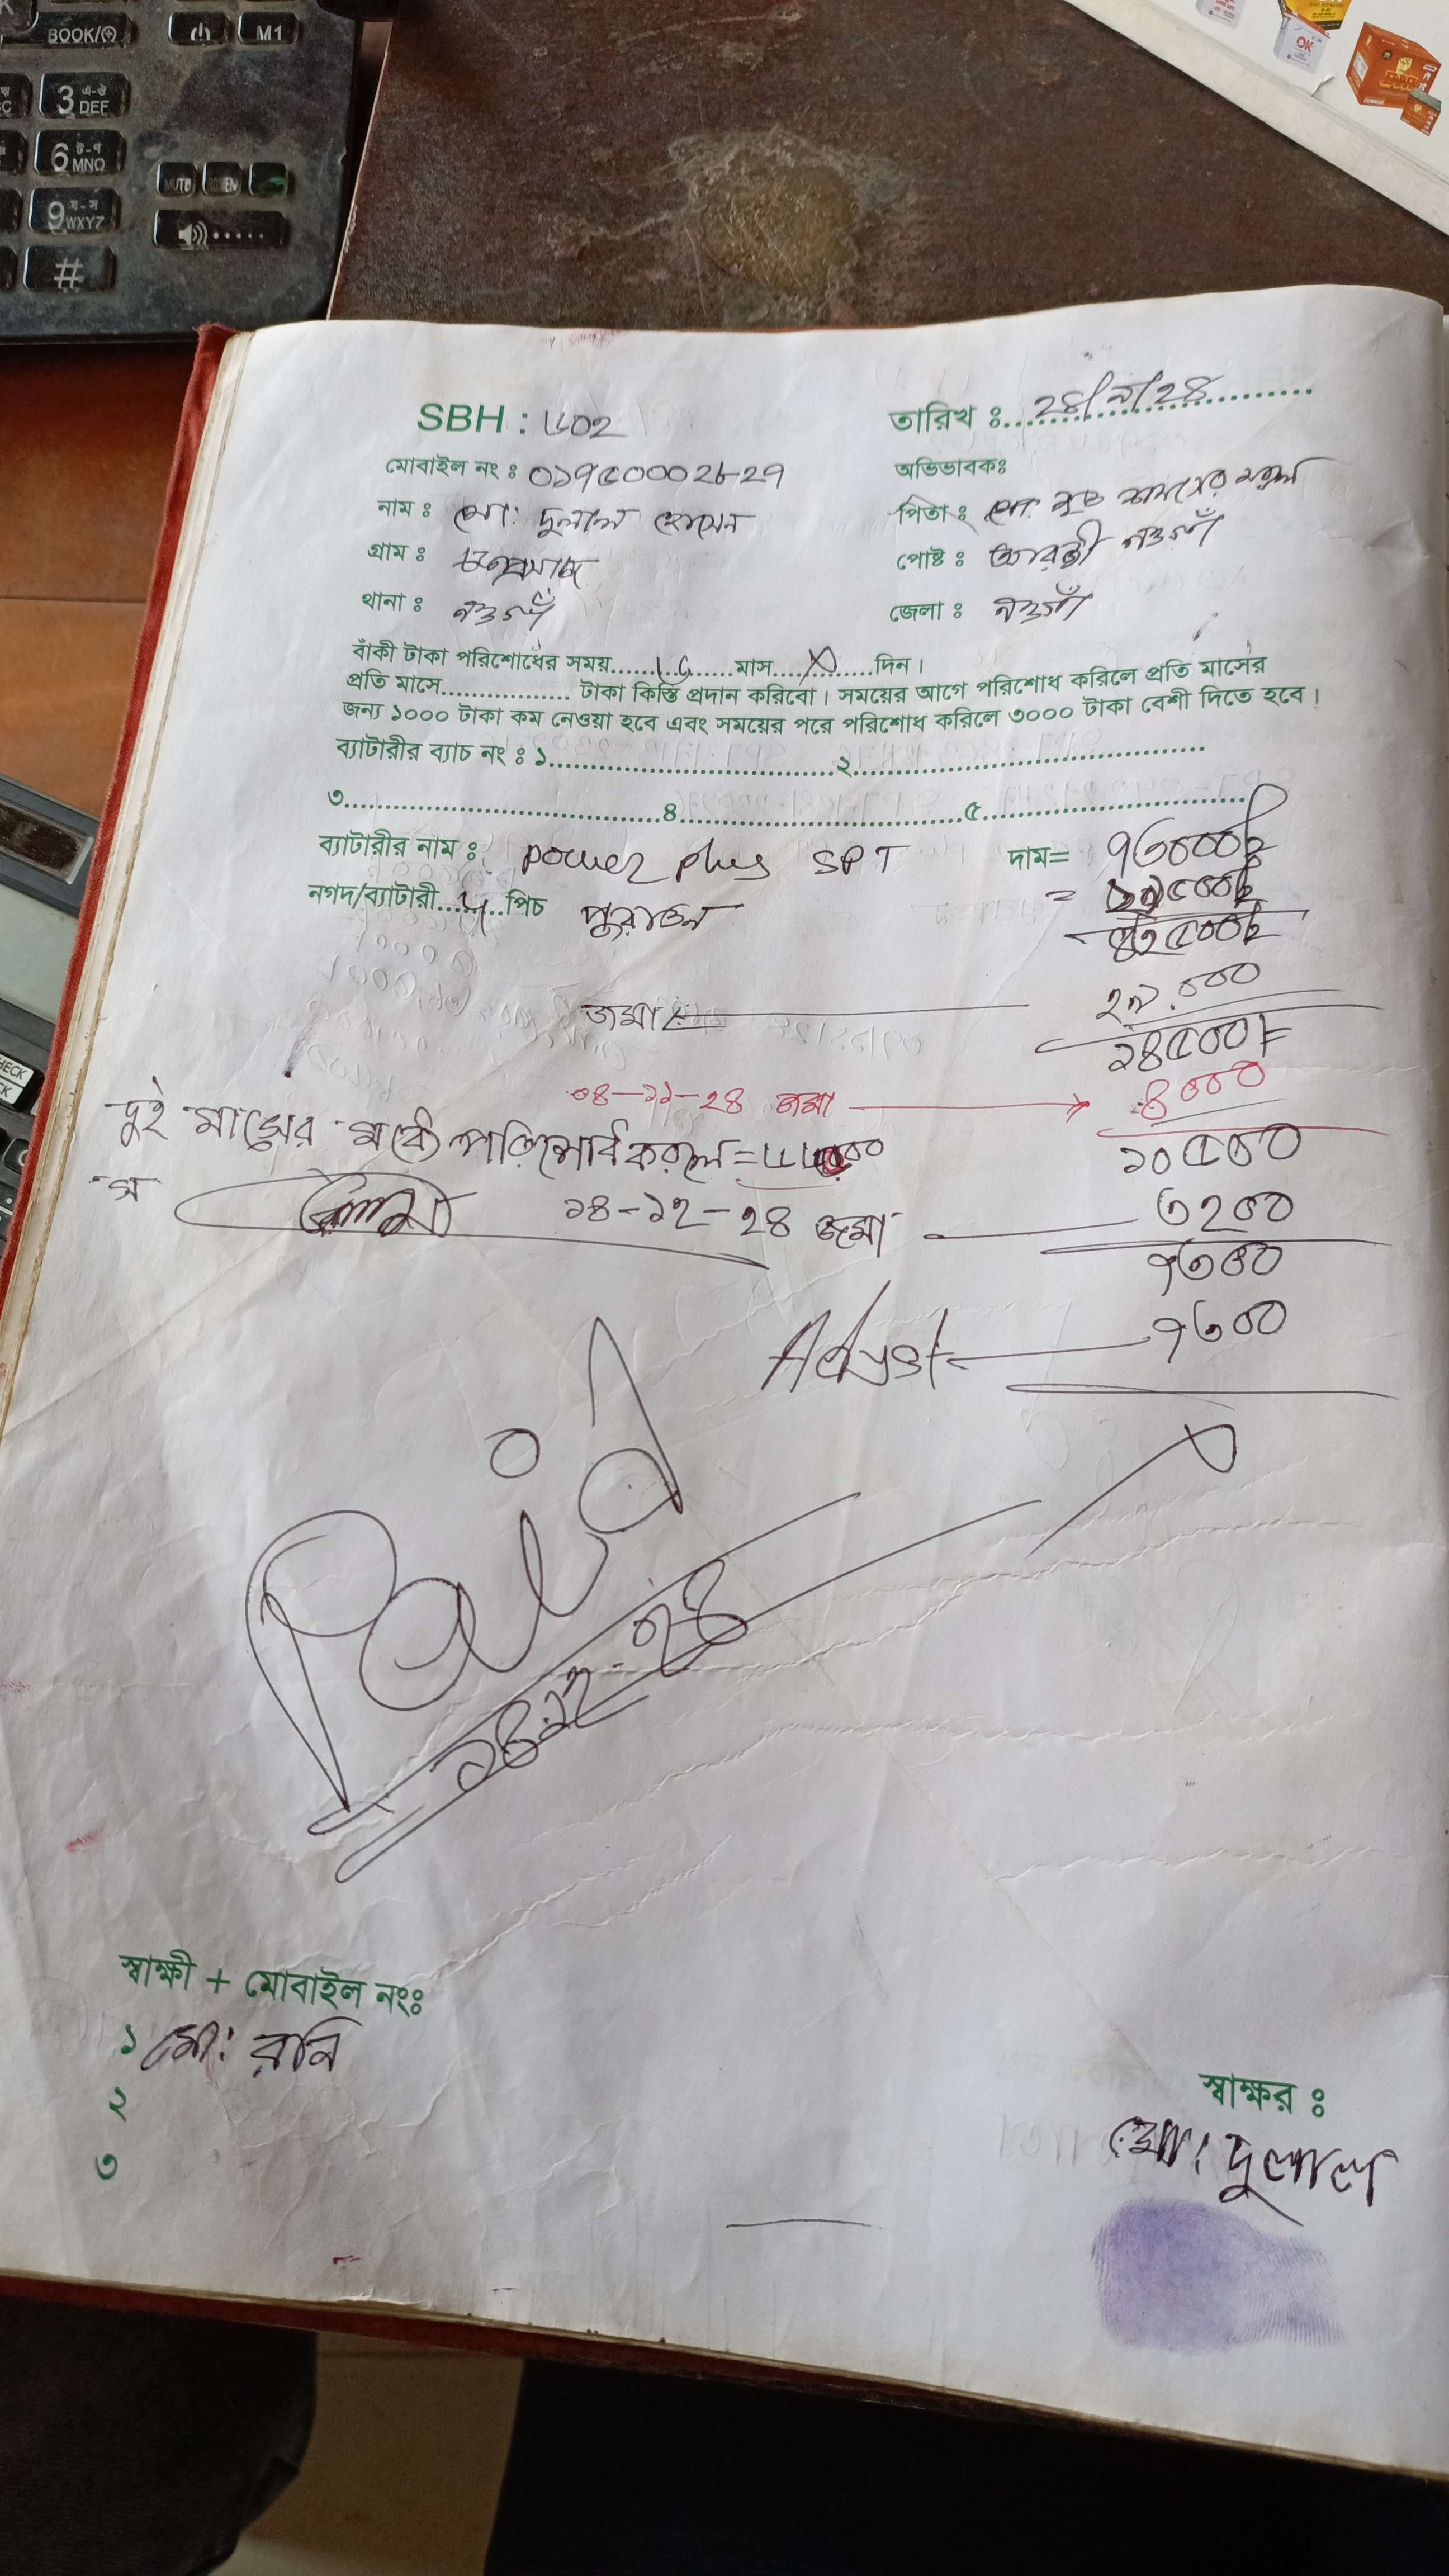 BOOK/
M1
3 এ-ঔ
DEF
6 ট-ণ
MNO
MUTE
9 য-স
WXYZ
#
OK
SBH : ৬০২
তারিখ ঃ ২৪/৯/২৪
মোবাইল নং ঃ ০১৭৫০০০২৮২৭
অভিভাবকঃ
নাম ঃ মো: দুলাল হোসেন
পিতা ঃ মো: মৃত
গ্রাম ঃ
পোষ্ট ঃ আরজী নওগাঁ
থানা ঃ নওগাঁ
জেলা ঃ নওগাঁ
বাঁকী টাকা পরিশোধের সময়...........মাস...X......দিন।
প্রতি মাসে................ টাকা কিস্তি প্রদান করিবো। সময়ের আগে পরিশোধ করিলে প্রতি মাসের
জন্য ১০০০ টাকা কম নেওয়া হবে এবং সময়ের পরে পরিশোধ করিলে ৩০০০ টাকা বেশী দিতে হবে।
ব্যাটারীর ব্যাচ নং ঃ ১....................................২....................................
৩....................................৪....................................৫....................................
ব্যাটারীর নাম ঃ power plus SPT দাম= ৭৩০০০/=
নগদ/ব্যাটারী........পিচ পুরাতন = ৫০০/=
৪৩৫০০/=
জমা ২৯.০০০
১৪৫০০/=
০৪-১১-২৪ জমা → ৪০০০
দুই মাসের মধ্যে পরিশোধ করলে =
১০৫০০
১৪-১২-২৪ জমা ৩২০০
৭৩০০
Adjust ৭৩০০
০
Paid
১৪.১২.২৪
স্বাক্ষী + মোবাইল নংঃ
১ মো: রনি
২
৩
স্বাক্ষর ঃ
মো: দুলাল